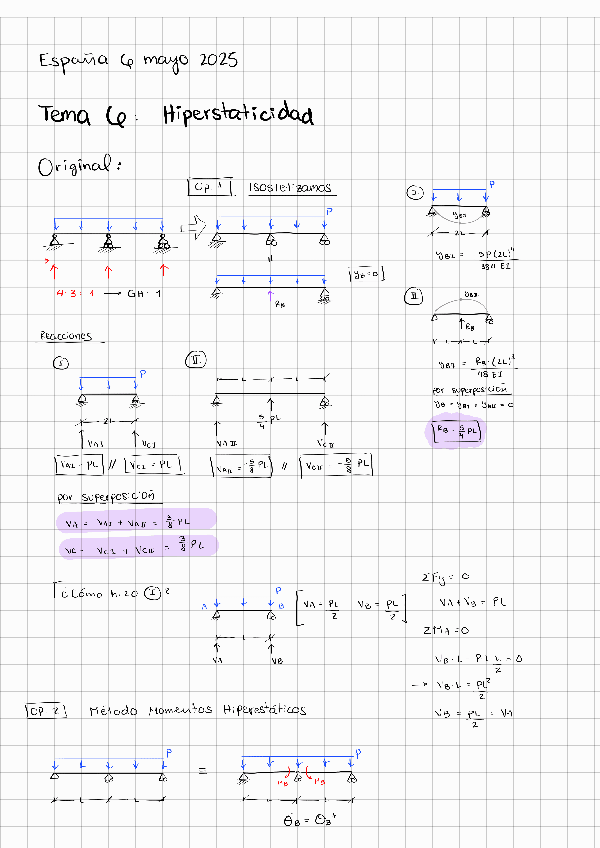 España 6 mayo 2025
Tema 6: Hiperstaticidad
Original:
Op 1 Isostetizamos
P
4-3 = 1 → GH = 1
=
[y_B = 0]
R_B
I.
P
y_BI
2L
y_BI = 5P(2L)⁴ / 384 EI
II.
y_BII
R_B
L L
y_BII = R_B · (2L)³ / 48 EI
por superposición
y_B = y_BI + y_BII = 0
R_B = 5/4 PL
Reacciones
I.
P
2L
V_AI V_CI
V_AI = PL // V_CI = PL
II.
L L
5/4 PL
V_AII V_CII
V_AII = -5/8 PL // V_CII = -5/8 PL
por superposición
V_A = V_AI + V_AII = 3/8 PL
V_C = V_CI + V_CII = 3/8 PL
¿Cómo hizo I?
P
A B
L
V_A V_B
[V_A = PL/2 V_B = PL/2]
ΣFy = 0
V_A + V_B = PL
ΣM_A = 0
V_B · L - PL L/2 = 0
→ V_B · L = PL²/2
V_B = PL/2 = V_A
OP 2 Método Momentos Hiperestáticos
P
L L
=
P
M_B M_B
L L
θ_B⁻ = θ_B⁺